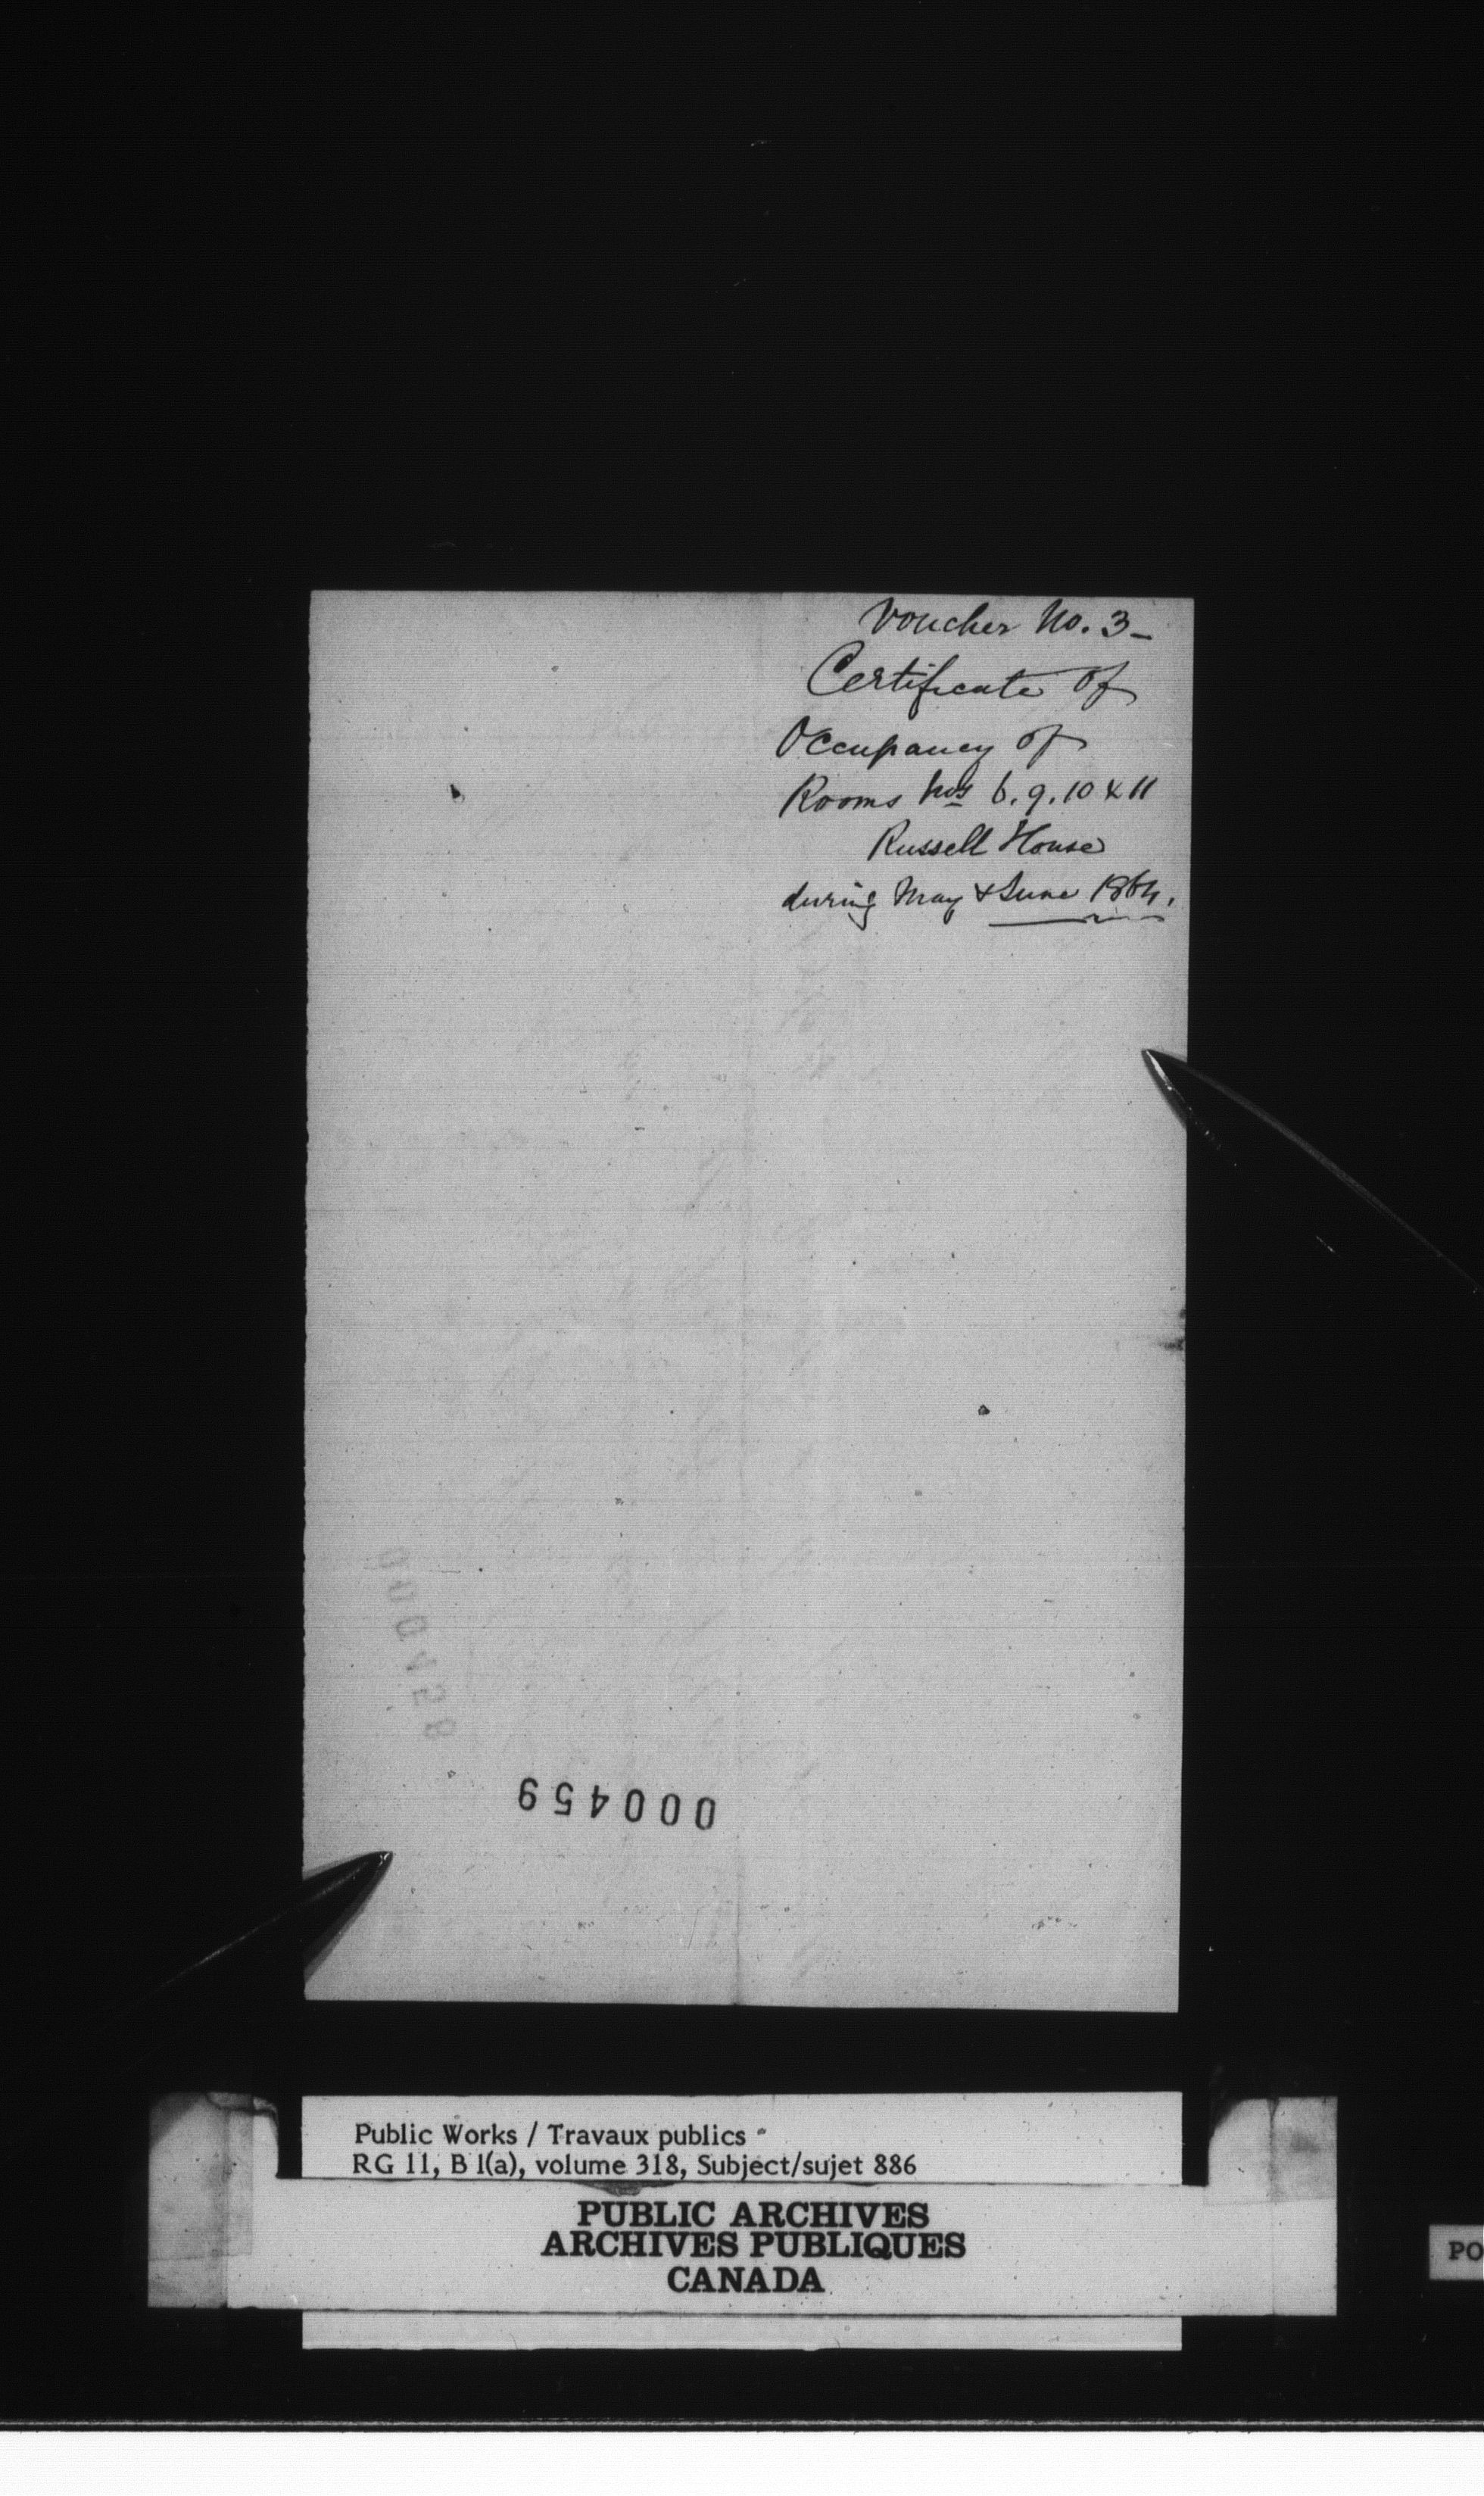 Voucher No. 3_
Certificate of
Occupancy of
Rooms Nos 6. 9. 10 & 11
Russell House
during May & June 1864.
000458
000459
Public Works / Travaux publics
RG 11, B 1(a), volume 318, Subject/sujet 886
PUBLIC ARCHIVES
ARCHIVES PUBLIQUES
CANADA
PO